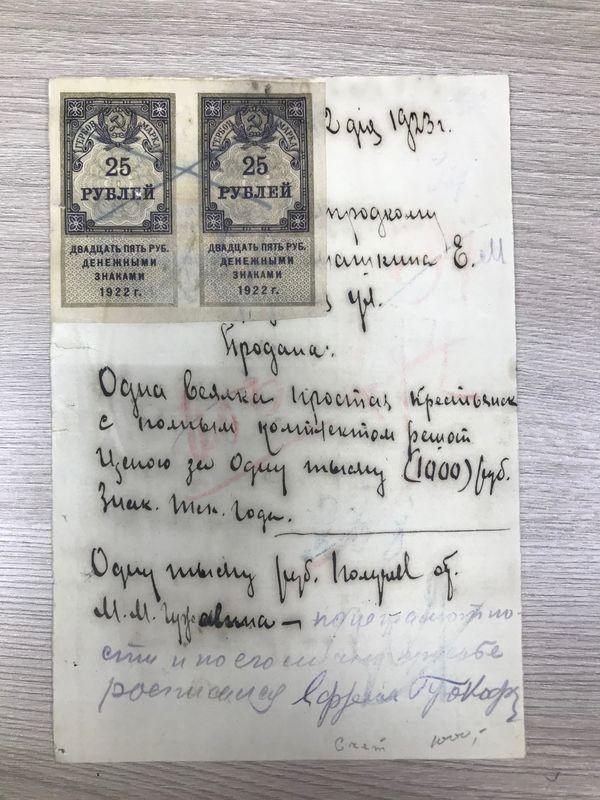 ГЕРБОВ. МАРКА
25
РУБЛЕЙ
ДВАДЦАТЬ ПЯТЬ РУБ.
ДЕНЕЖНЫМИ
ЗНАКАМИ
1922 г.
ГЕРБОВ. МАРКА
25
РУБЛЕЙ
ДВАДЦАТЬ ПЯТЬ РУБ.
ДЕНЕЖНЫМИ
ЗНАКАМИ
1922 г.
2 дня 1923 г.
Е. М
ул.
Продана:
Одна веялка простая крестьянск
с полным комплектом решот
Ценою за одну тысячу (1000) руб.
Знак. тек. года.
Одну тысячу руб. Получил от
М. М.
по неграмотно-
сти и по его личной просьбе
росписался Ефрем
Счет 1000,-